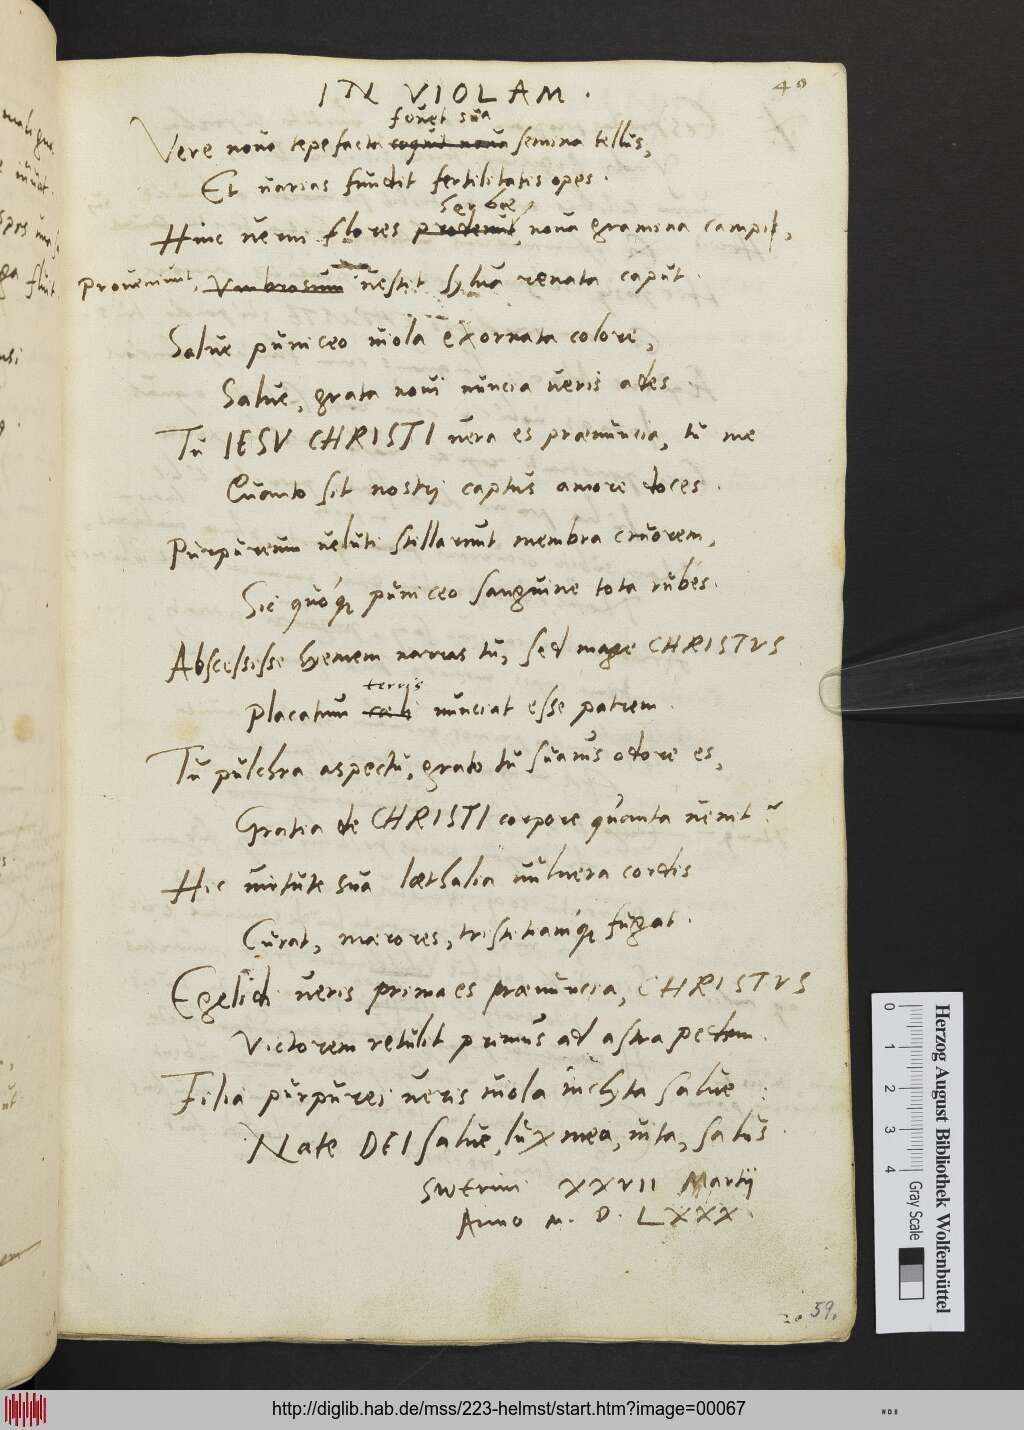 40
IN VIOLAM.
fovet sua
Vere novo tepefacta coquit nova semina tellus,
Et varias fundit fertilitatis opes.
Hinc nemi flores prodeunt, nova gramina campi,
proveniunt, Umbrosum vestit sylva renata caput.
Salve puniceo viola exornata colore,
Salve, grata novi nuncia veris ades.
Tu IESU CHRISTI vera es praenuncia, tu me
Quanto sit nostri captus amore doces.
Purpureum veluti stillarunt membra cruorem,
Sic quoque puniceo sanguine tota rubes.
Abscessisse hyemem narras tu, sed mage CHRISTUS
terris
Placatum caeli nunciat esse patrem.
Tu pulchra aspectu, grato tu suavis odore es,
Gratia de CHRISTI corpore quanta venit?
Hic virtute sua laethalia vulnera cordis
Curat, maerores, tristitiamque fugat.
Egelidi veris prima es praenuncia, CHRISTUS
Victorem retulit primus ad astra pedem.
Filia purpurei veris viola inclyta salve:
Nate DEI salve, lux mea, vita, salus.
Swerini XXVII Martij
Anno M. D. LXXX.
59.
Herzog August Bibliothek Wolfenbüttel
Gray Scale
0 1 2 3 4
http://diglib.hab.de/mss/223-helmst/start.htm?image=00067